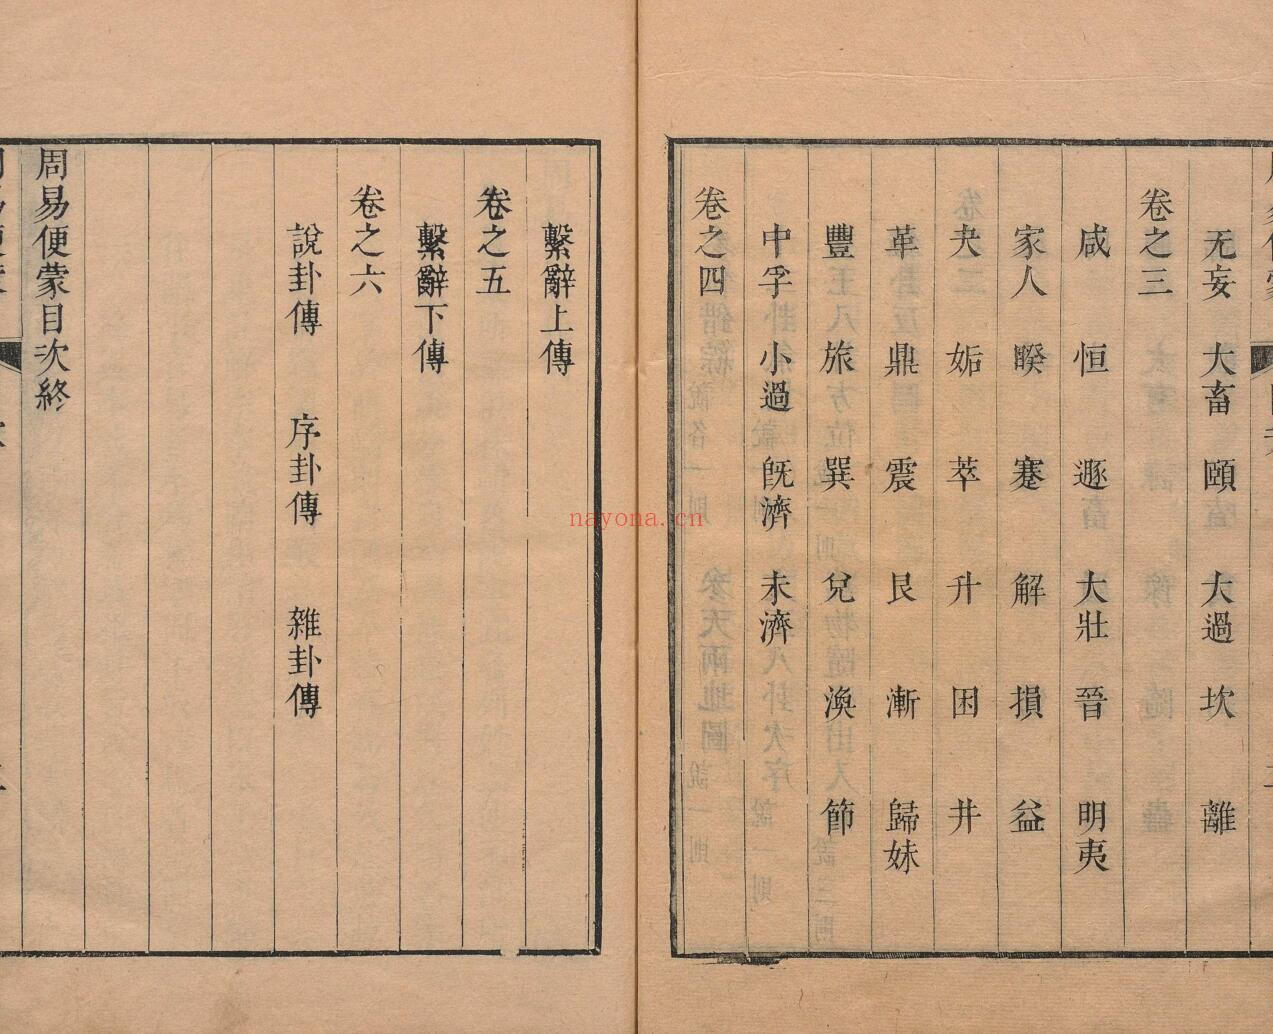 无妄 大畜 頤 大過 坎 離
卷之三
咸 恒 遯 大壯 晉 明夷
家人 睽 蹇 解 損 益
夬 姤 萃 升 困 井
革 鼎 震 艮 漸 歸妹
豐 旅 巽 兌 渙 節
中孚 小過 旣濟 未濟
卷之四
繫辭上傳
卷之五
繫辭下傳
卷之六
說卦傳 序卦傳 雜卦傳
周易便蒙目次終
nayona.cn